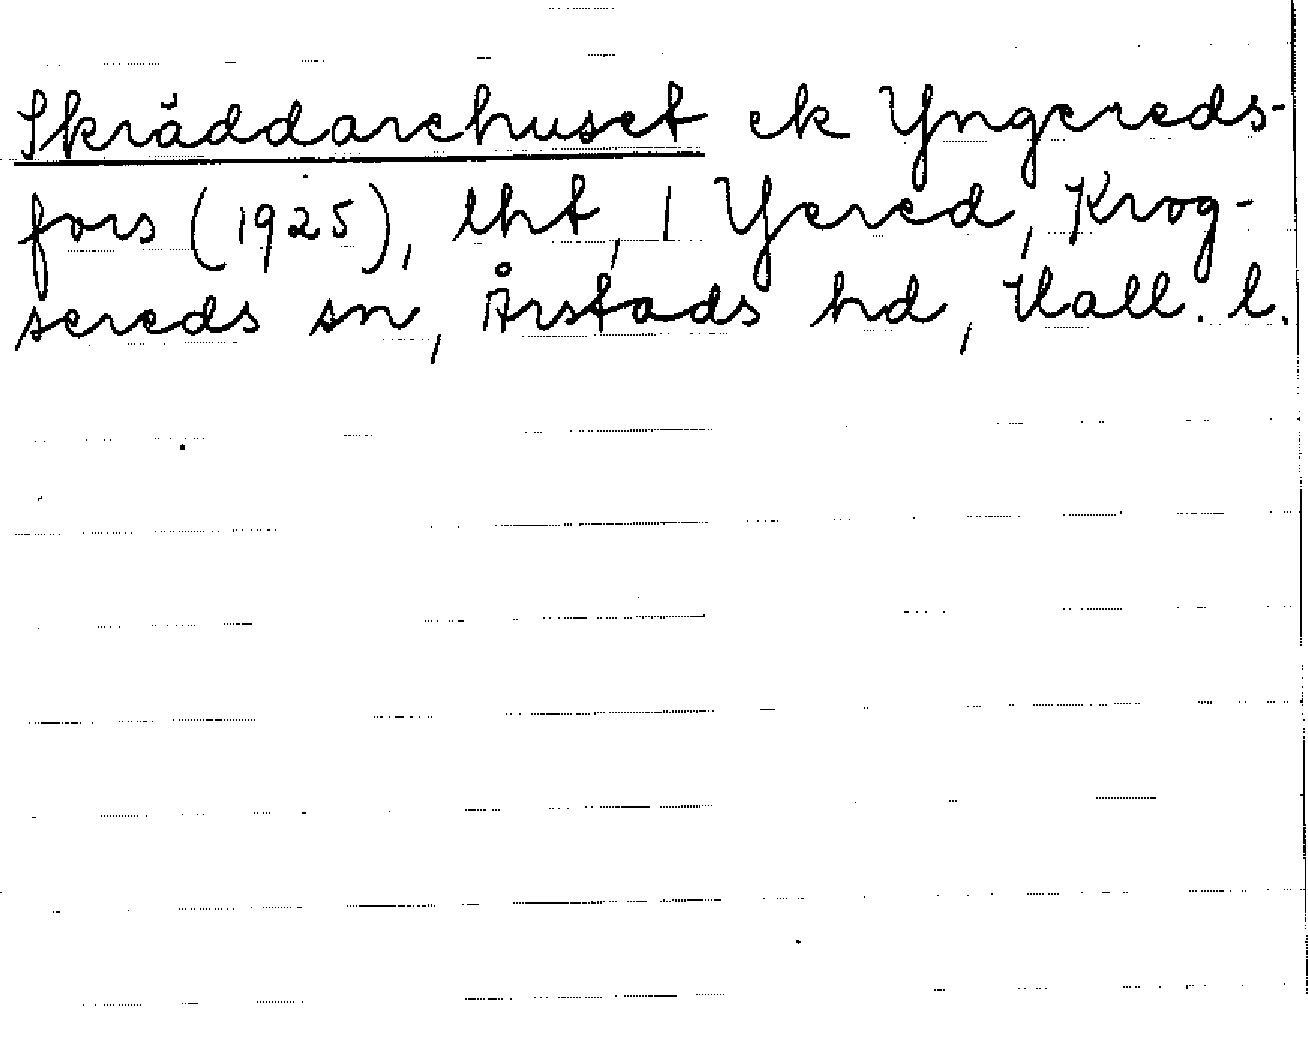 Skräddarehuset ek Yngereds-
fors (1925), lht, 1 Yered, Krog-
sereds sn, Årstads hd, Hall. l.